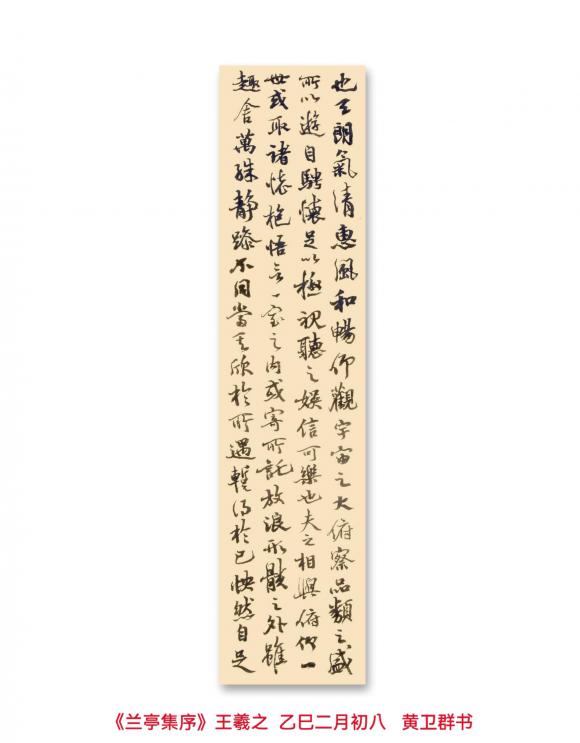 也天朗氣清惠風和暢仰觀宇宙之大俯察品類之盛
所以遊目騁懷足以極視聽之娛信可樂也夫之相與俯仰一
世或取諸懷抱悟言一室之內或寄所託放浪形骸之外雖
趣舍萬殊静躁不同當其欣於所遇暫得於己怏然自足
《兰亭集序》王羲之 乙巳二月初八 黄卫群书